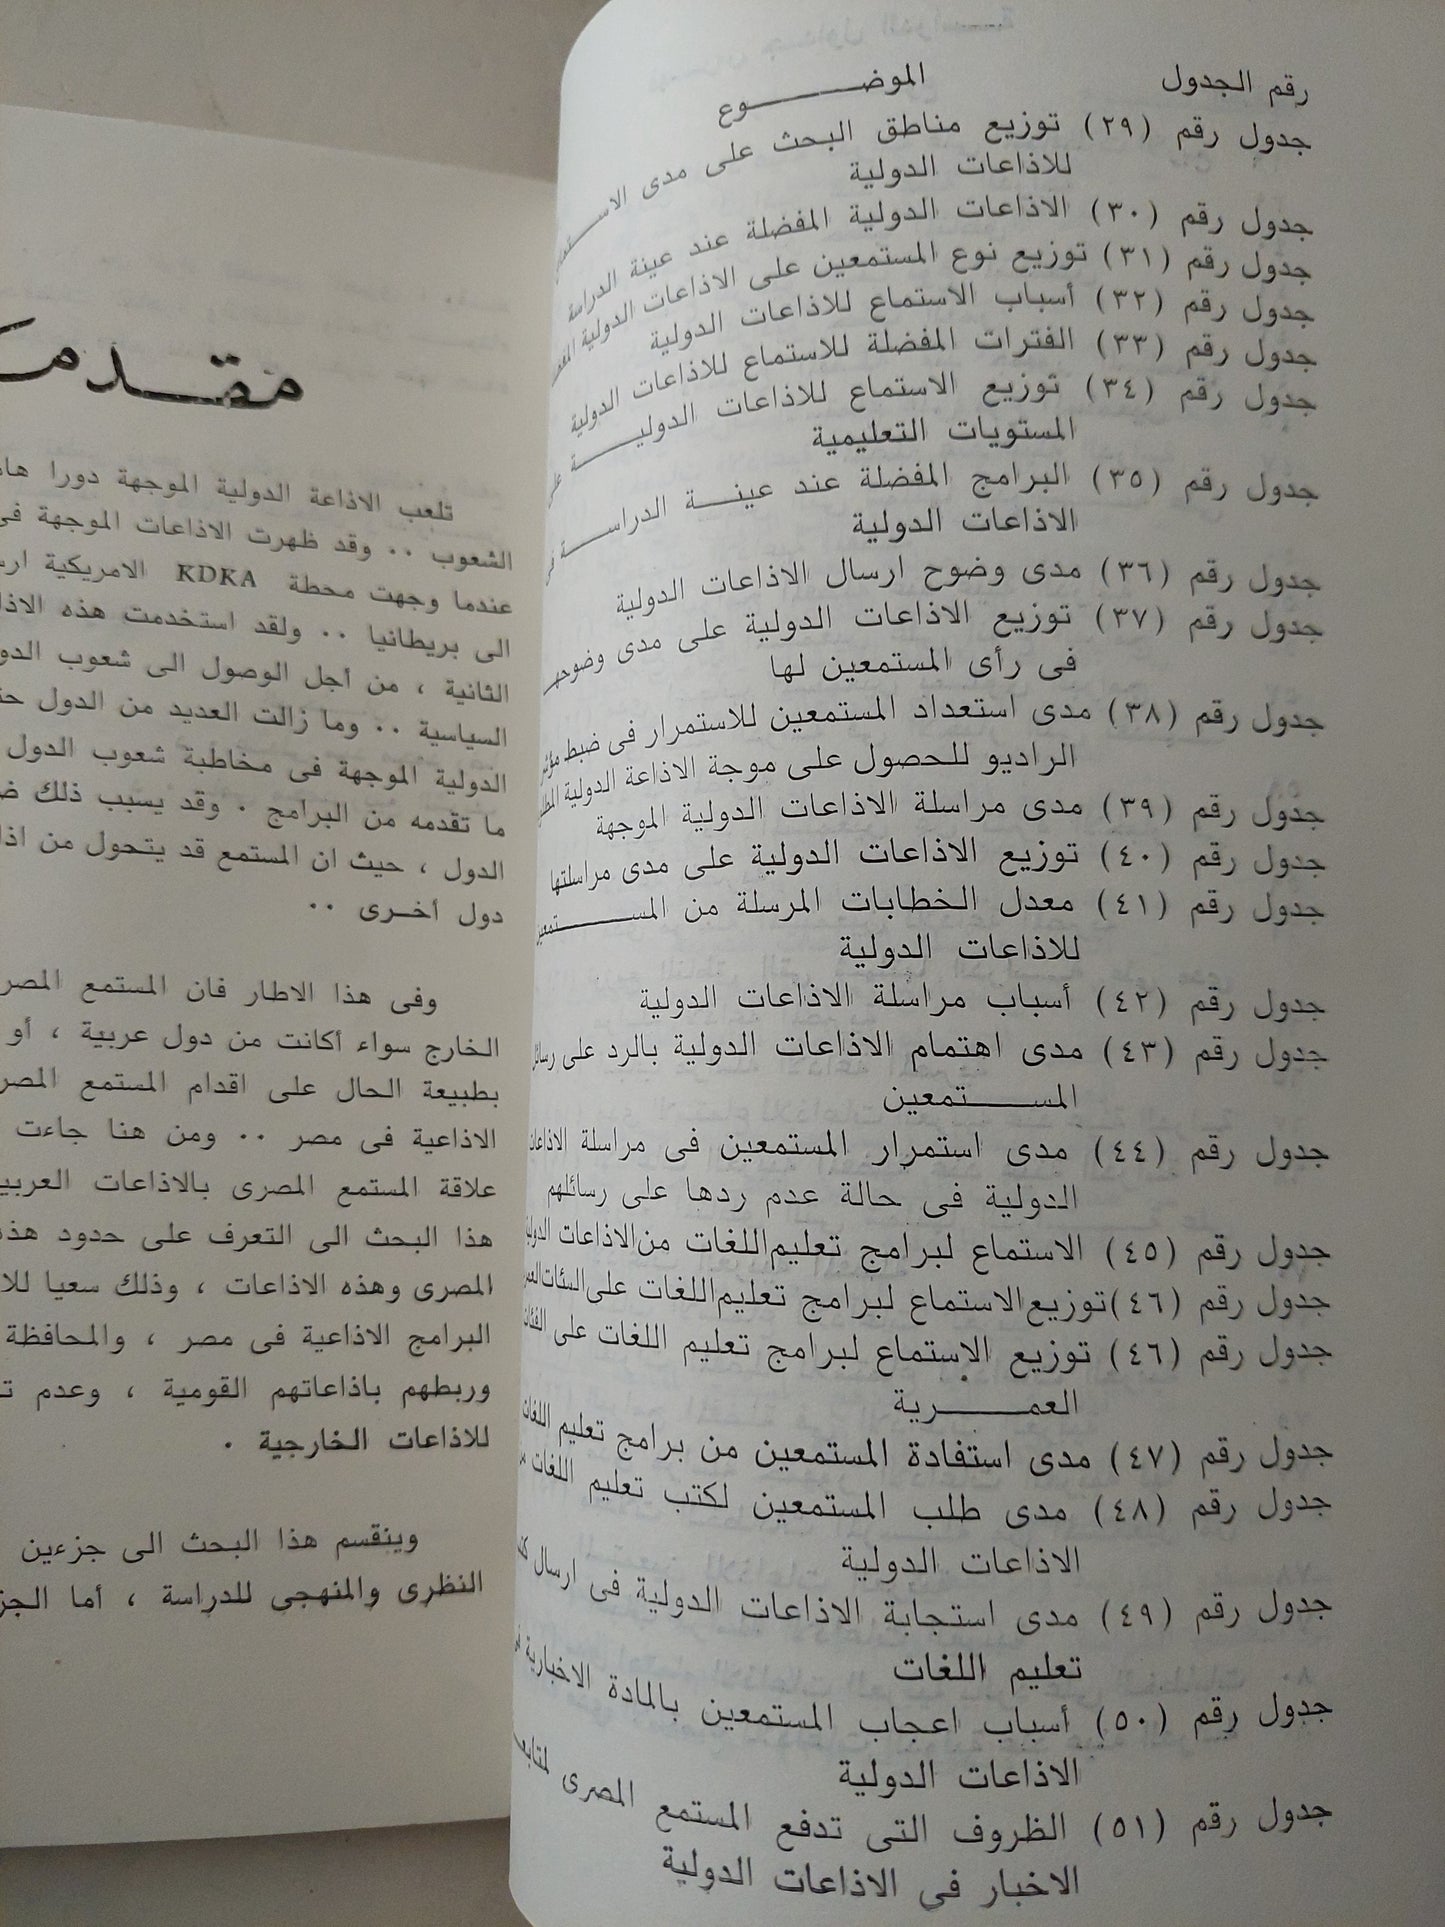 رقم الجدول الموضـــــــوع
جدول رقم (٢٩) توزيع مناطق البحث على مدى
للاذاعات الدولية
جدول رقم (٣٠) الاذاعات الدولية المفضلة عند عينة الدراسة
جدول رقم (٣١) توزيع نوع المستمعين على الاذاعات الدولية
جدول رقم (٣٢) أسباب الاستماع للاذاعات الدولية
جدول رقم (٣٣) الفترات المفضلة للاستماع للاذاعات الدولية
جدول رقم (٣٤) توزيع الاستماع للاذاعات الدوليــــة
المستويات التعليمية
جدول رقم (٣٥) البرامج المفضلة عند عينـــة الدراســـة
الاذاعات الدولية
جدول رقم (٣٦) مدى وضوح ارسال الاذاعات الدولية
جدول رقم (٣٧) توزيع الاذاعات الدولية على مدى
فى رأى المستمعين لها
جدول رقم (٣٨) مدى استعداد المستمعين للاستمرار فى ضبط
الراديو للحصول على موجة الاذاعة الدولية
جدول رقم (٣٩) مدى مراسلة الاذاعات الدولية الموجهة
جدول رقم (٤٠) توزيع الاذاعات الدولية على مدى مراسلتها
جدول رقم (٤١) معدل الخطابات المرسلة من المســـــتمعين
للاذاعات الدولية
جدول رقم (٤٢) أسباب مراسلة الاذاعات الدولية
جدول رقم (٤٣) مدى اهتمام الاذاعات الدولية بالرد على
المســـــتمعين
جدول رقم (٤٤) مدى استمرار المستمعين فى مراسلة الاذاعات
الدولية فى حالة عدم ردها على رسائلهم
جدول رقم (٤٥) الاستماع لبرامج تعليم اللغات من الاذاعات
جدول رقم (٤٦) توزيع الاستماع لبرامج تعليم اللغات على
جدول رقم (٤٦) توزيع الاستماع لبرامج تعليم اللغات على
العمـــــرية
جدول رقم (٤٧) مدى استفادة المستمعين من برامج تعليم اللغات
جدول رقم (٤٨) مدى طلب المستمعين لكتب تعليم اللغات
الاذاعات الدولية
جدول رقم (٤٩) مدى استجابة الاذاعات الدولية فى ارسال
تعليم اللغات
جدول رقم (٥٠) أسباب اعجاب المستمعين بالمادة الاخبارية
الاذاعات الدولية
جدول رقم (٥١) الظروف التى تدفع المستمع المصرى
الاخبار فى الاذاعات الدولية
تلعب الاذاعة الدولية الموجهة دورا
الشعوب ٠٠ وقد ظهرت الاذاعات الموجهة
عندما وجهت محطة KDKA الامريكية
الى بريطانيا ٠٠ ولقد استخدمت هذه
الثانية ، من أجل الوصول الى شعوب
السياسية ٠٠ وما زالت العديد من الدول
الدولية الموجهة فى مخاطبة شعوب الدول
ما تقدمه من البرامج ٠ وقد يسبب ذلك
الدول ، حيث ان المستمع قد يتحول من
دول أخــرى ٠٠
وفى هذا الاطار فان المستمع
الخارج سواء أكانت من دول عربية ، أو
بطبيعة الحال على اقدام المستمع
الاذاعية فى مصر ٠٠ ومن هنا جاءت
علاقة المستمع المصرى بالاذاعات
هذا البحث الى التعرف على حدود
المصرى وهذه الاذاعات ، وذلك سعيا
البرامج الاذاعية فى مصر ، والمحافظة
وربطهم باذاعاتهم القومية ، وعدم
للاذاعات الخارجية ٠
وينقسم هذا البحث الى جزءين
النظرى والمنهجى للدراسة ، أما